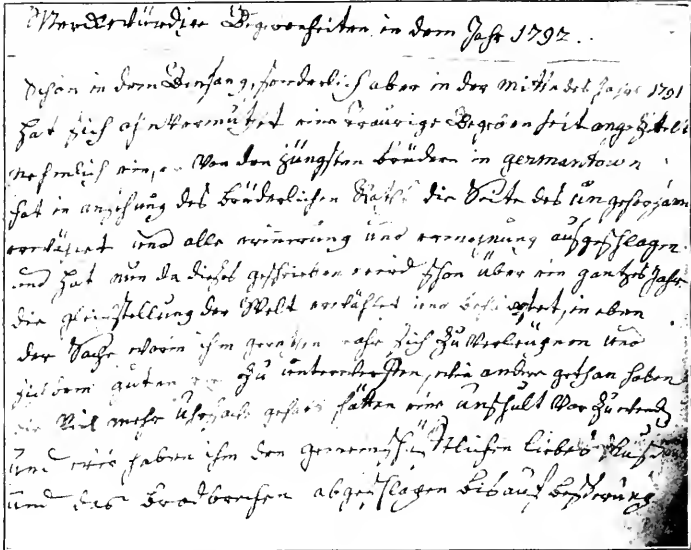 Merckwürdige Begebenheiten in dem Jahr 1792..
Schon in dem Anfang, sonderlich aber in der Mitte des Jahrs 1791
hat sich ohnvermuhtet eine traurige Begebenheit angezettelt
nehmlich einer von den jüngsten brüdern in germantown
hat in ansehung des brüderlichen Raths die Seite des ungehorsam
erwählet und alle erinnerung und ermahnung ausgeschlagen
und hat nun da dieses geschrieben wird schon über ein gantzes Jahr
die gleichstellung der Welt erwählet und behauptet, in eben
der Sache worin ihm gerahten wahr sich zu verleügnen und
guten zu unterwerffen, wie andere gethan haben
die viel mehr uhrsach gehabt hätten eine unschult vor zu wenden
und wir haben ihm den gemeinschäftlichen liebes kuss
und das brodbrechen abgeschlagen bis auf besserung